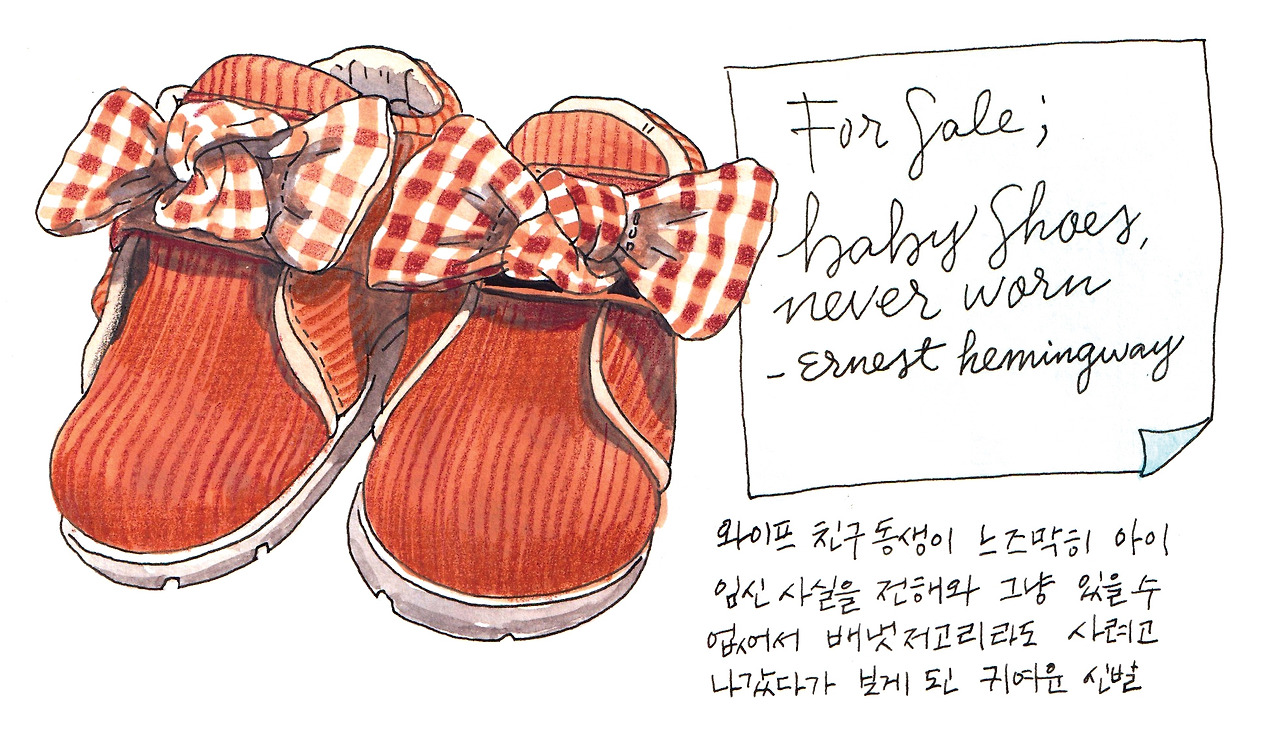 For Sale;
baby Shoes,
never worn
- Ernest hemingway
와이프 친구 동생이 느즈막히 아이
임신 사실을 전해와 그냥 있을 수
없어서 배냇저고리라도 사려고
나갔다가 보게 된 귀여운 신발